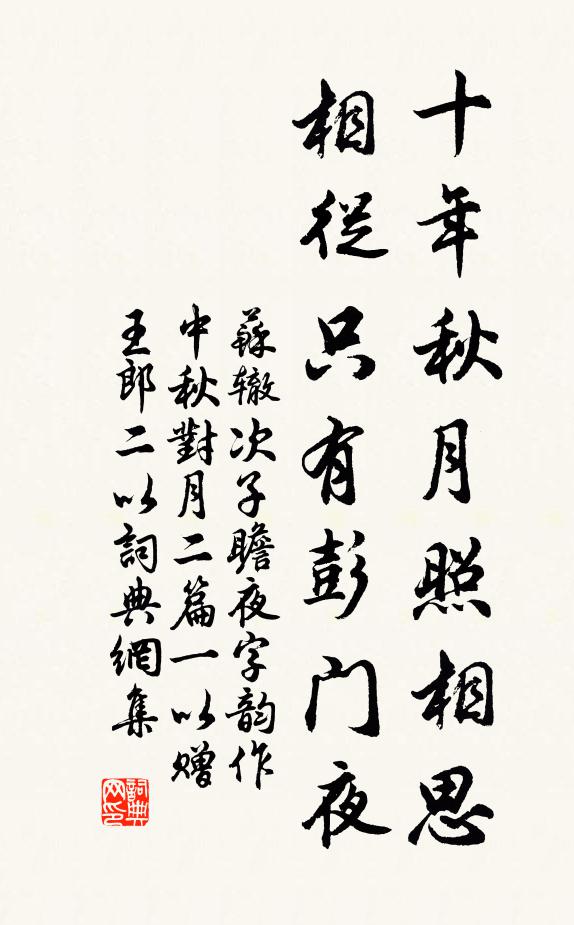 十年秋月照相思
相從只有彭门夜
蘇辙次子瞻夜字韵作
中秋對月二篇一以赠
王郎二以詞典網集
詞典网印